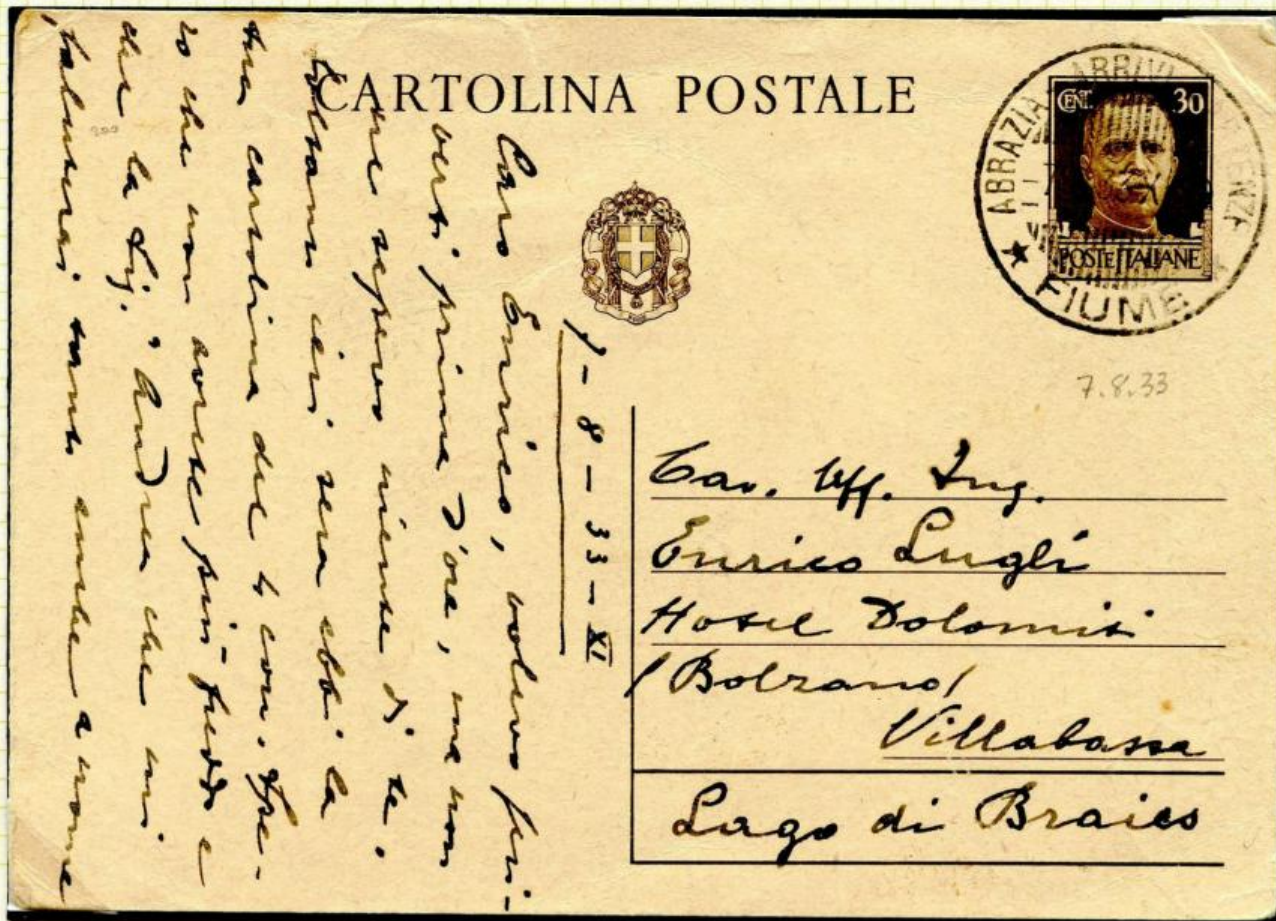 CARTOLINA POSTALE
ABBAZIA ARRIVI
FIUME
CENT. 30
POSTE ITALIANE
7.8.33
7-8-33-XI
Caro Enrico, volevo scri-
verti prima d'ora, ma non
ne sapevo niente di te.
Soltanto ieri sera ebbi la
tua cartolina del 4 corr. Spe-
ro che non avrete più freddo e
che la Sig.a Andrea che mi
saluterai tanto anche a nome
Cav. Uff. Ing.
Enrico Lugli
Hotel Dolomiti
(Bolzano)
Villabassa
Lago di Braies